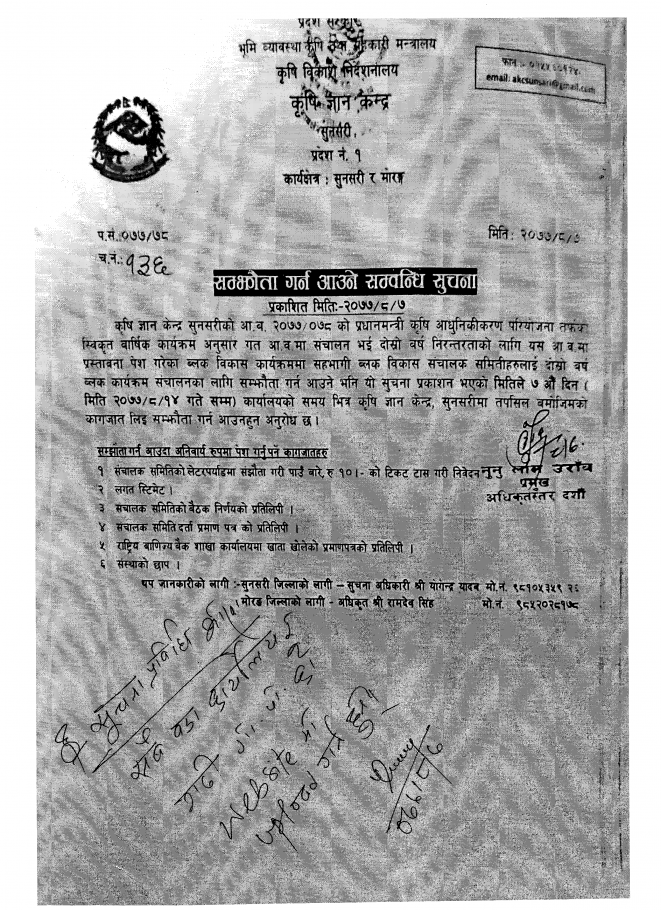 प्रदेश सरकार
भूमि व्यवस्था कृषि तथा सहकारी मन्त्रालय
कृषि विकास निर्देशनालय
कृषि ज्ञान केन्द्र
सुनसरी,
प्रदेश नं. १
कार्यक्षेत्र : सुनसरी र मोरङ
फोन :-
email: akcsunsari@gmail.com
प.सं.:०७७/७८
मिति: २०७७/८/७
च.नं.: १३६
सम्झौता गर्न आउने सम्वन्धि सुचना
प्रकाशित मिति:-२०७७/८/७
कृषि ज्ञान केन्द्र सुनसरीको आ.ब. २०७७/०७८ को प्रधानमन्त्री कृषि आधुनिकीकरण परियोजना तर्फको
स्विकृत वार्षिक कार्यक्रम अनुसार गत आ.व.मा संचालन भई दोस्रो बर्ष निरन्तरताको लागि यस आ.व.मा
प्रस्तावना पेश गरेका ब्लक विकास कार्यक्रममा सहभागी ब्लक विकास संचालक समितीहरुलाई दोस्रो बर्ष
ब्लक कार्यक्रम संचालनका लागि सम्झौता गर्न आउने भनि यो सुचना प्रकाशन भएको मितिले ७ औं दिन (
मिति २०७७/८/१४ गते सम्म) कार्यालयको समय भित्र कृषि ज्ञान केन्द्र, सुनसरीमा तपसिल बमोजिमको
कागजात लिइ सम्झौता गर्न आउनहुन अनुरोध छ।
सम्झौता गर्न आउदा अनिवार्य रुपमा पेश गर्नुपर्ने कागजातहरु
१ संचालक समितिको लेटरपर्याडमा संझौता गरी पाउँ बारे, रु १०।- को टिकट टास गरी निवेदन
नुनु लाल उराँव
प्रमुख
अधिकृतस्तर दशौं
२ लगत स्टिमेट ।
३ संचालक समितिको बैठक निर्णयको प्रतिलिपी ।
४ संचालक समिति दर्ता प्रमाण पत्र को प्रतिलिपी ।
५ राष्ट्रिय बाणिज्य बैंक शाखा कार्यालयमा खाता खोलेको प्रमाणपत्रको प्रतिलिपी ।
६ संस्थाको छाप ।
थप जानकारीको लागी :-सुनसरी जिल्लाको लागी – सुचना अधिकारी श्री योगेन्द्र यादब मो.नं. ९८१०५३५९ २६
मोरङ जिल्लाको लागी - अधिकृत श्री रामदेव सिंह मो.नं. ९८५२०२८१७८
सुचना प्रविधि
वडा कार्यालय
गढी गा. पा. का
website मा
upload गर्न